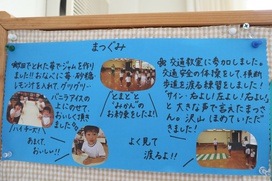 まつぐみ
畑でとれた苺でジャムを作り
ました!!おなべに苺・砂糖・
レモン汁を入れて、グツグツ…
バニラアイスの
上にのせて、
おいしく頂き
ました
ハイ・チーズ!
あまくて、
おいしい!!
交通教室に参加しました。
交通安全の体操をして、横断
歩道を渡る練習をしました!
サイン・右よし!左よし!右よし!
と大きな声で言えたまつぐみ
さん。沢山ほめていただ
きました!
とまとと
“みかん”の
お約束をしたよ!
よく見て
渡るよ!!